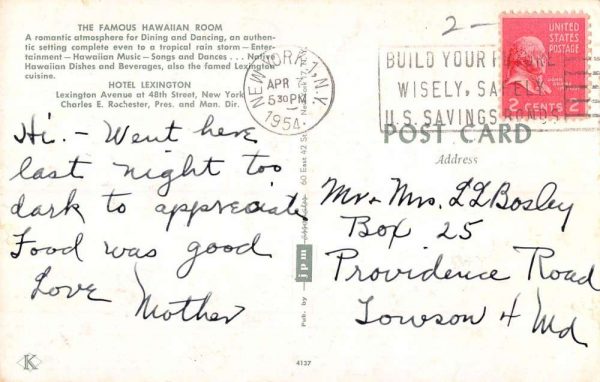 THE FAMOUS HAWAIIAN ROOM
A romantic atmosphere for Dining and Dancing, an authen-
tic setting complete even to a tropical rain storm — Enter-
tainment — Hawaiian Music — Songs and Dances . . . Native
Hawaiian Dishes and Beverages, also the famed Lexington
cuisine.
HOTEL LEXINGTON
Lexington Avenue at 48th Street, New York
Charles E. Rochester, Pres. and Man. Dir.
Hi. - Went here
last night too
dark to appreciate
Food was good
Love
Mother
K
NEW YORK, 1, N.Y.
APR
5 30 PM
1954
Pub. by jpm
60 East 42 St. New York 17, N.Y.
4137
2 -
UNITED
STATES
POSTAGE
2 CENTS 2
BUILD YOUR FUTURE
WISELY, SAFELY
U.S. SAVINGS BONDS
POST CARD
Address
Mr & Mrs. LL Bosley
Box 25
Providence Road
Towson 4 Md